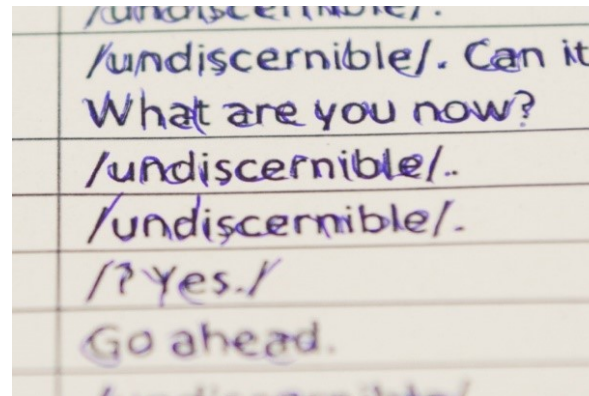 /undiscernible/.
/undiscernible/. Can it
What are you now?
/undiscernible/..
/undiscernible/.
/? Yes./
Go ahead.
/undiscernible/